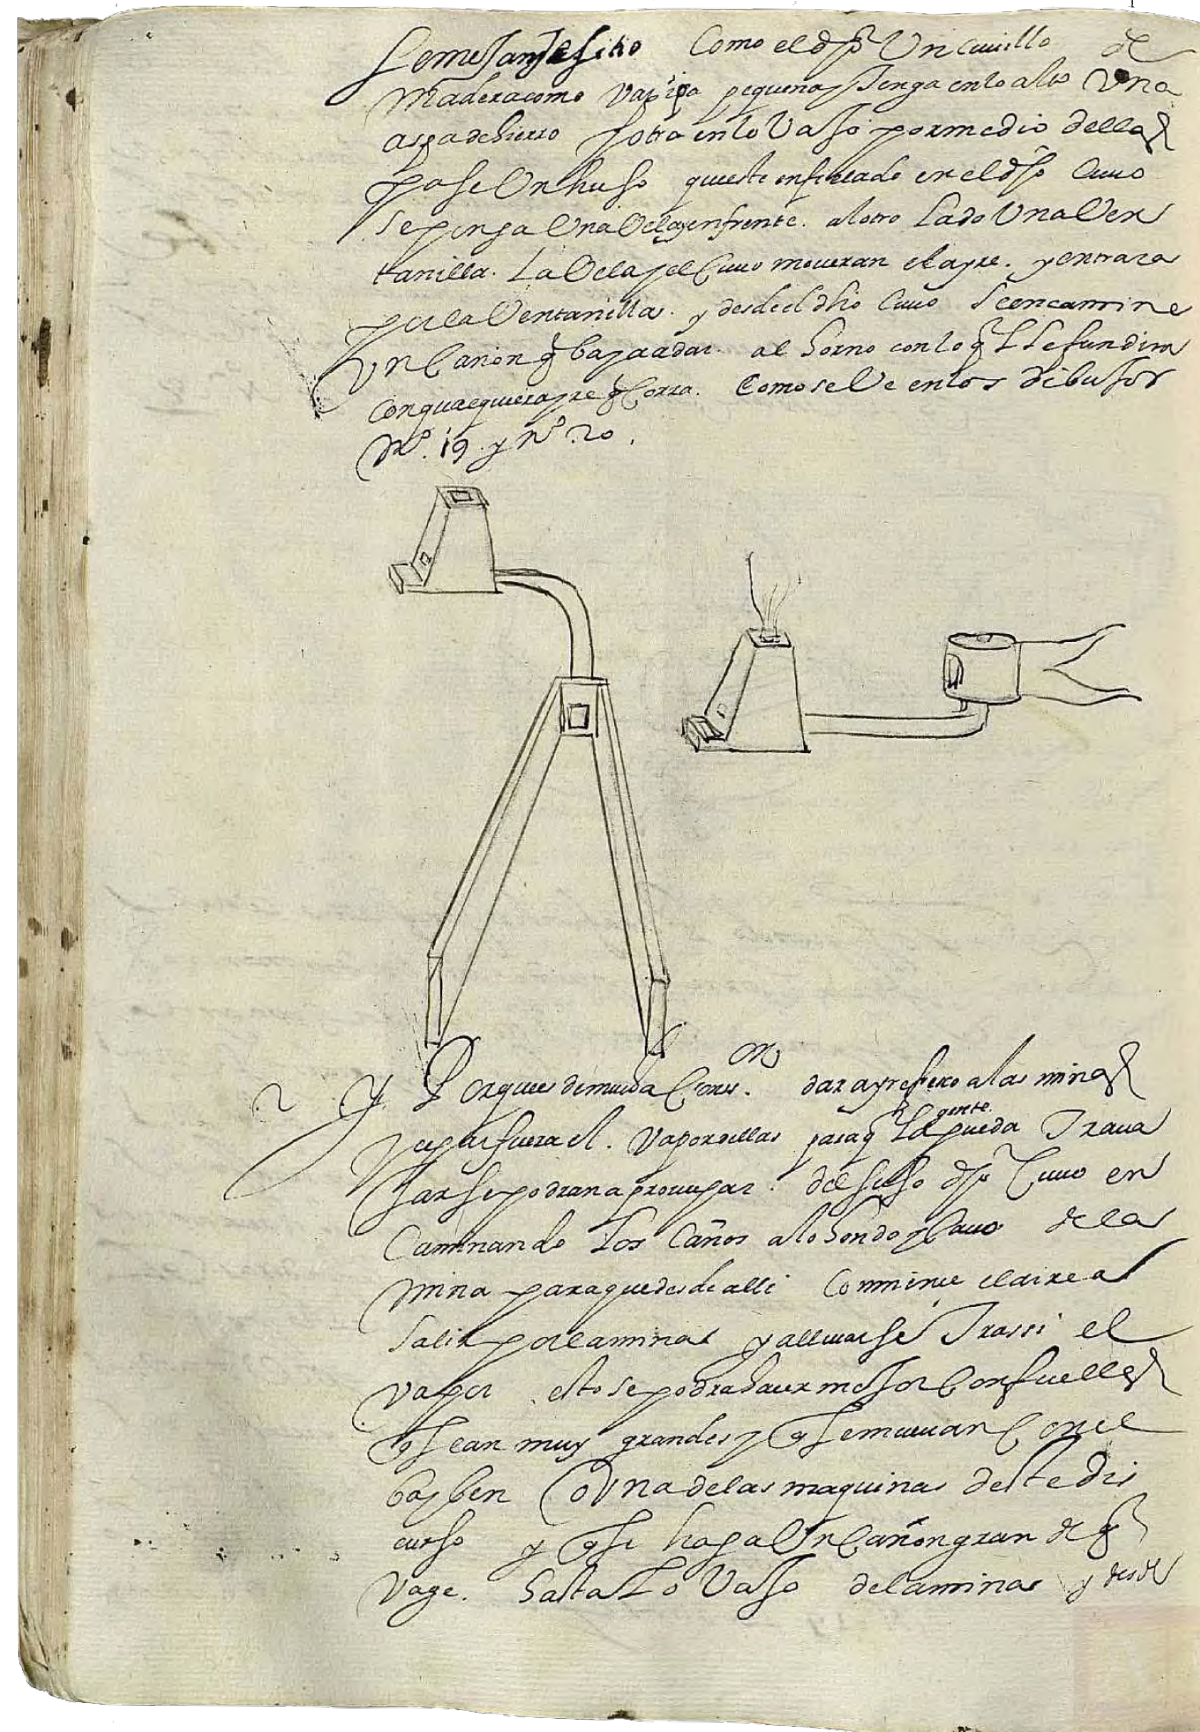 semejante sitio Como el dho Un cuuillo de
Madera como Va pipa pequena y Tenga en lo alto Una
aspa de hierro y otra en lo Vajo por medio dellas
pase Un huso que este enficado en el dho Cuuo
se ponga Una Vela y enfrente. al otro Lado Una Ven
tanilla. La Vela y el Cuuo moueran el ayre. y entrara
por la Ventanilla. y desde el dho Cuuo Se encamine
Un Cañon q baja a dar al horno con lo q se fundira
con qualquiera ayre q Corra. Como se Ve en los dibujos
No. 19. y No. 20.
2 Y Porque es de mucha Considon. dar ayre fresco a las minas
y echar fuera el. Vapor dellas para q La gente pueda Traua
jar se podran aprouechar. del suso dho Cuuo en
Caminando Los Caños a lo hondo y Cauo de la
mina para que desde alli Comience el aire a
Salir por la mina y a lleuarse Tras si el
Vapor esto se podra hacer mejor Con fuelles
q sean muy grandes y q se mueuan Con el
baiben o Una de las maquinas deste dis
curso y q se haga Un Cañon grande q
Vage. hasta Lo Vajo de la mina y desde